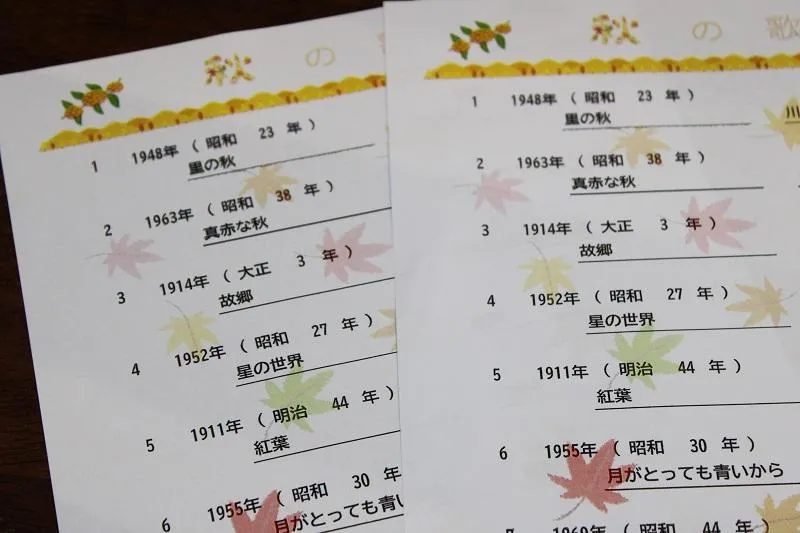 秋 の 歌
1 1948年 ( 昭和 23 年 )
里の秋
2 1963年 ( 昭和 38 年 )
真赤な秋
3 1914年 ( 大正 3 年 )
故郷
4 1952年 ( 昭和 27 年 )
星の世界
5 1911年 ( 明治 44 年 )
紅葉
6 1955年 ( 昭和 30 年
月がとっても青い
秋 の 歌
1 1948年 ( 昭和 23 年 )
里の秋
川
2 1963年 ( 昭和 38 年 )
真赤な秋
3 1914年 ( 大正 3 年 )
故郷
4 1952年 ( 昭和 27 年 )
星の世界
5 1911年 ( 明治 44 年 )
紅葉
6 1955年 ( 昭和 30 年 )
月がとっても青いから
7 1969年 ( 昭和 44 年 )